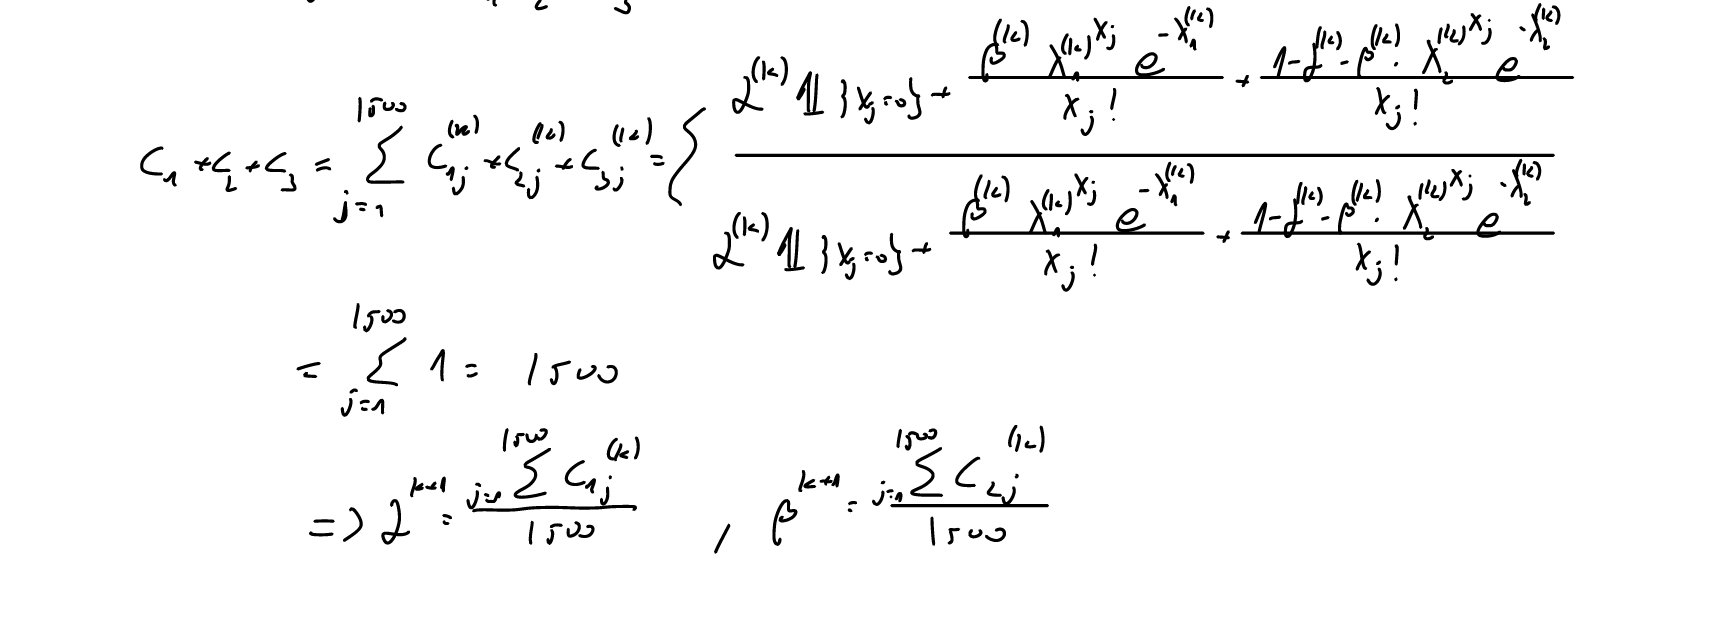 C₁ + C₂ + C₃ = \sum_{j=1}^{1500} C_{1j}^{(k)} + C_{2j}^{(k)} + C_{3j}^{(k)} = \sum \frac{α^{(k)} 𝟙\{x_j=0\} + \frac{β^{(k)} λ_1^{(k) x_j} e^{-λ_1^{(k)}}}{x_j!} + \frac{1-α^{(k)}-β^{(k)} · λ_2^{(k) x_j} e^{-λ_2^{(k)}}}{x_j!}}{α^{(k)} 𝟙\{x_j=0\} + \frac{β^{(k)} λ_1^{(k) x_j} e^{-λ_1^{(k)}}}{x_j!} + \frac{1-α^{(k)}-β^{(k)} · λ_2^{(k) x_j} e^{-λ_2^{(k)}}}{x_j!}}
= \sum_{j=1}^{1500} 1 = 1500
=> α^{k+1} = \frac{\sum_{j=1}^{1500} C_{1j}^{(k)}}{1500} , β^{k+1} = \frac{\sum_{j=1}^{1500} C_{2j}^{(k)}}{1500}